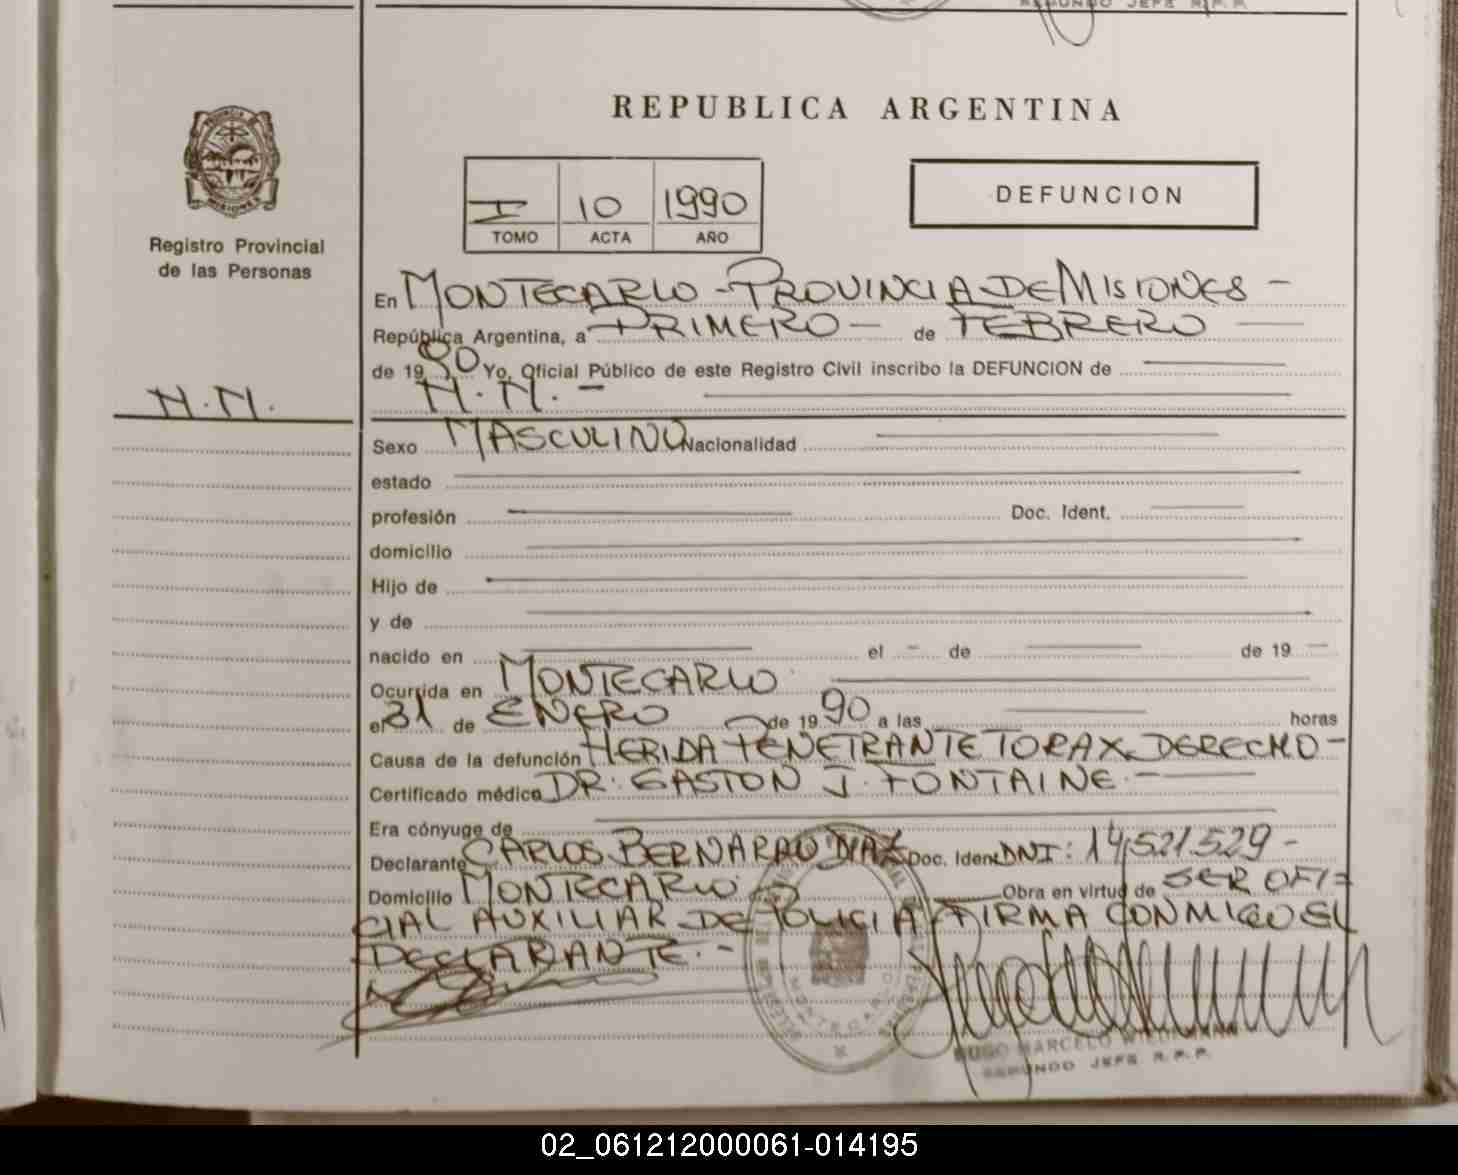 REPUBLICA ARGENTINA
I 10 1990
TOMO ACTA AÑO
DEFUNCION
Registro Provincial
de las Personas
N.N.
En MONTECARLO - PROVINCIA DE MISIONES -
República Argentina, a PRIMERO - de FEBRERO
de 1990 Yo, Oficial Público de este Registro Civil inscribo la DEFUNCION de
N.N. -
Sexo MASCULINO Nacionalidad
estado
profesión Doc. Ident.
domicilio
Hijo de
y de
nacido en el - de de 19 -
Ocurrida en MONTECARLO
el 31 de ENERO de 1990 a las horas
Causa de la defunción HERIDA PENETRANTE TORAX DERECHO -
Certificado médico DR. GASTON J. FONTAINE. -
Era cónyuge de
Declarante CARLOS BERNARDO DIAZ Doc. Ident. DNI: 14.521.529 -
Domicilio MONTECARLO Obra en virtud de SER OFI=
CIAL AUXILIAR DE POLICIA FIRMA CONMIGO EL
DECLARANTE. -
MONTECARLO
HUGO MARCELO WIEDEMANN
SEGUNDO JEFE R.P.P.
02_061212000061-014195